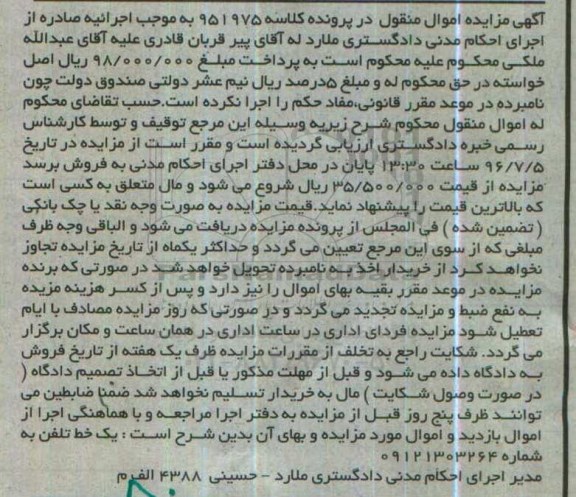 آگهی مزایده اموال منقول در پرونده کلاسه ۹۵۱۹۷۵ به موجب اجرائیه صادره از
اجرای احکام مدنی دادگستری ملارد له آقای پیر قربان قادری علیه آقای عبدالله
ملکی محکوم علیه محکوم است به پرداخت مبلغ ۹۸/۰۰۰/۰۰۰ ریال اصل
خواسته در حق محکوم له و مبلغ ۵درصد ریال نیم عشر دولتی صندوق دولت چون
نامبرده در موعد مقرر قانونی،مفاد حکم را اجرا نکرده است.حسب تقاضای محکوم
له اموال منقول محکوم شرح زیربه وسیله این مرجع توقیف و توسط کارشناس
رسمی خبره دادگستری ارزیابی گردیده است و مقرر است از مزایده در تاریخ
۹۶/۷/۵ ساعت ۱۳:۳۰ پایان در محل دفتر اجرای احکام مدنی به فروش برسد
مزایده از قیمت ۳۵/۵۰۰/۰۰۰ ریال شروع می شود و مال متعلق به کسی است
که بالاترین قیمت را پیشنهاد نماید.قیمت مزایده به صورت وجه نقد یا چک بانکی
( تضمین شده ) فی المجلس از پرونده مزایده دریافت می شود و الباقی وجه ظرف
مبلغی که از سوی این مرجع تعیین می گردد و حداکثر یکماه از تاریخ مزایده تجاوز
نخواهد کرد از خریدار اخذ به نامبرده تحویل خواهد شد در صورتی که برنده
مزایده در موعد مقرر بقیه بهای اموال را نیز دارد و پس از کسر هزینه مزیده
به نفع ضبط و مزایده تجدید می گردد و در صورتی که روز مزایده مصادف با ایام
تعطیل شود مزایده فردای اداری در ساعت اداری در همان ساعت و مکان برگزار
می گردد. شکایت راجع به تخلف از مقررات مزایده ظرف یک هفته از تاریخ فروش
به دادگاه داده می شود و قبل از مهلت مذکور یا قبل از اتخاذ تصمیم دادگاه (
در صورت وصول شکایت ) مال به خریدار تسلیم نخواهد شد ضمنا ضابطین می
توانند ظرف پنج روز قبل از مزایده به دفتر اجرا مراجعه و با هماهنگی اجرا از
اموال بازدید و اموال مورد مزایده و بهای آن بدین شرح است : یک خط تلفن به
شماره ۰۹۱۲۱۳۰۳۲۶۴
مدیر اجرای احکام مدنی دادگستری ملارد - حسینی ۴۳۸۸ الف م